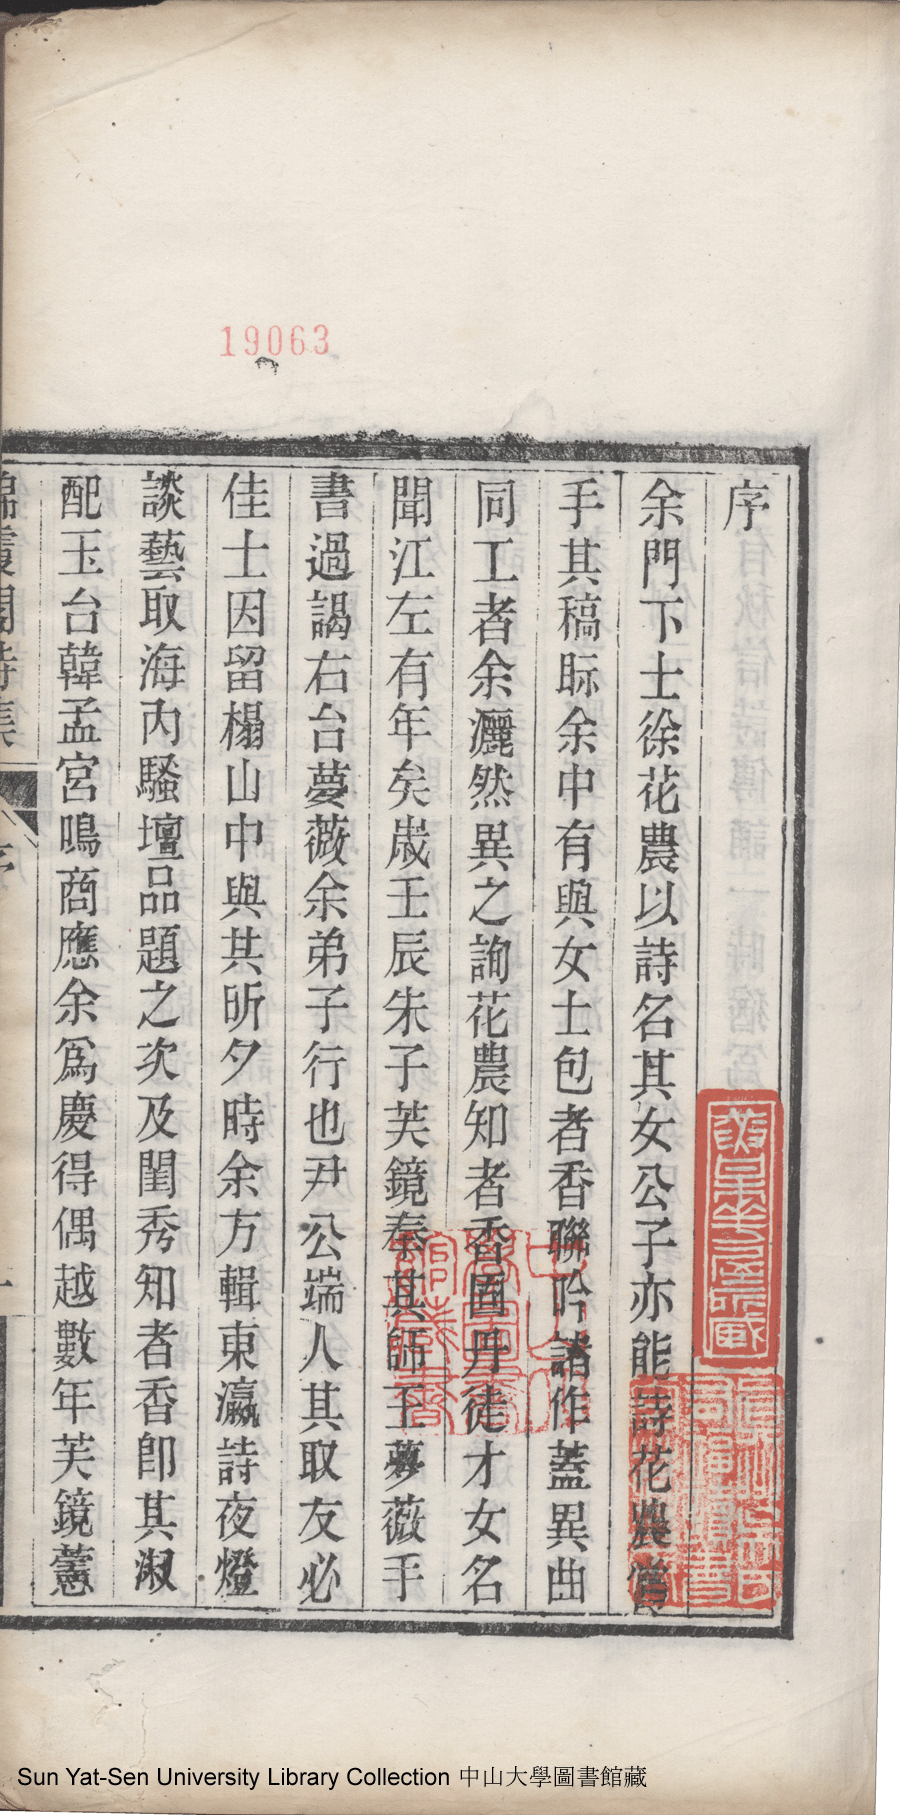 19063
序
余門下士徐花農以詩名其女公子亦能詩花農嘗
手其稿眎余中有與女士包者香聯吟諸作蓋異曲
同工者余灑然異之詢花農知者香固丹徒才女名
聞江左有年矣歲壬辰朱子芙鏡奉其師王夢薇手
書過謁右台夢薇余弟子行也尹公端人其取友必
佳士因留榻山中與其昕夕時余方輯東瀛詩夜燈
談藝取海內騷壇品題之次及閨秀知者香卽其淑
配玉台韓孟宮鳴商應余爲慶得偶越數年芙鏡藼
錦霞閣詩集
序
一
Sun Yat-Sen University Library Collection 中山大學圖書館藏